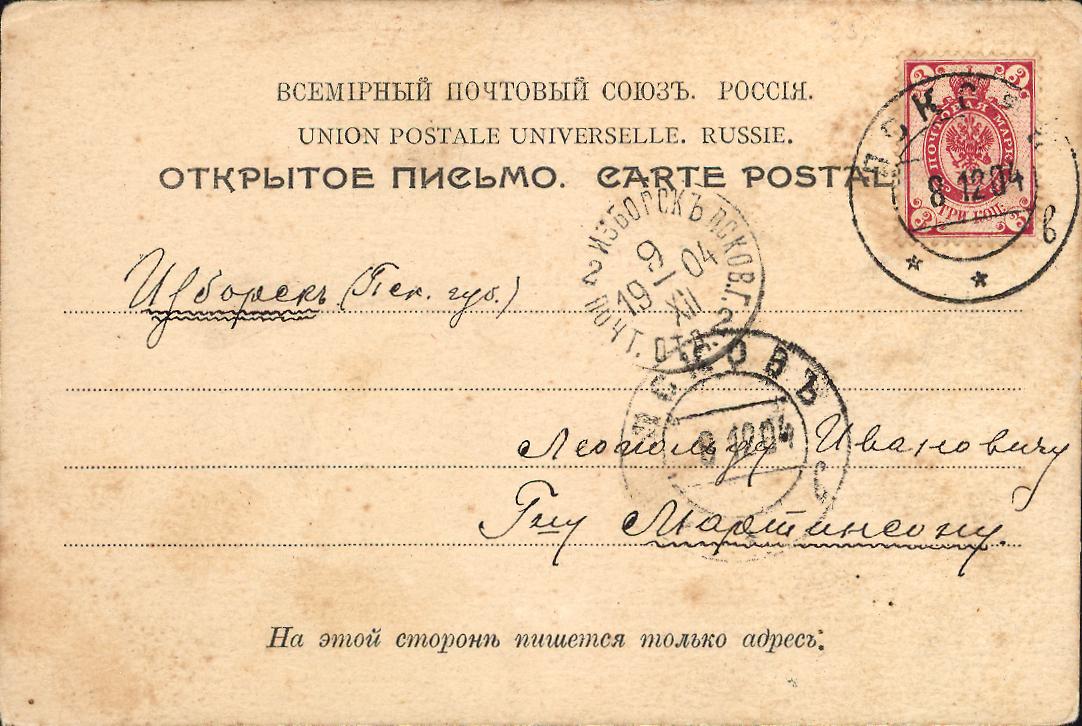 ВСЕМІРНЫЙ ПОЧТОВЫЙ СОЮЗЪ. РОССІЯ.
UNION POSTALE UNIVERSELLE. RUSSIE.
ОТКРЫТОЕ ПИСЬМО. CARTE POSTAL
ПОЧТОВАЯ МАРКА
ТРИ КОП.
3 3 3 3
ПСКОВЪ
8 12 04
в
ИЗБОРСКЪ ПСКОВ.Г.
9/XII 1904
2 ПОЧТ. ОТД. 2
Изборскъ (Пск. губ.)
ПСКОВЪ
8 12 04
с
Леопольду Ивановичу
Гну Мартинсону.
На этой сторонѣ пишется только адресъ.